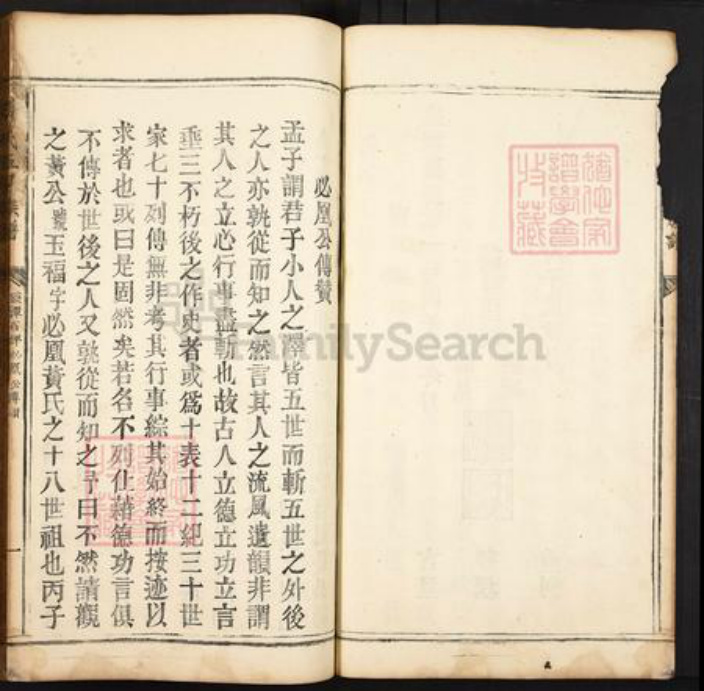 必凰公傳贊
孟子謂君子小人之澤皆五世而斬五世之外後
之人亦孰從而知之然言其人之流風遺韻非謂
其人之立必行事盡斬也故古人立德立功立言
垂三不朽後之作史者或爲十表十二紀三十世
家七十列傳無非考其行事綜其始終而按迹以
求者也或曰是固然矣若名不列仕藉德功言俱
不傳於世後之人又孰從而知之予曰不然請觀
之黃公號玉福字必凰黃氏之十八世祖也丙子
一
FamilySearch